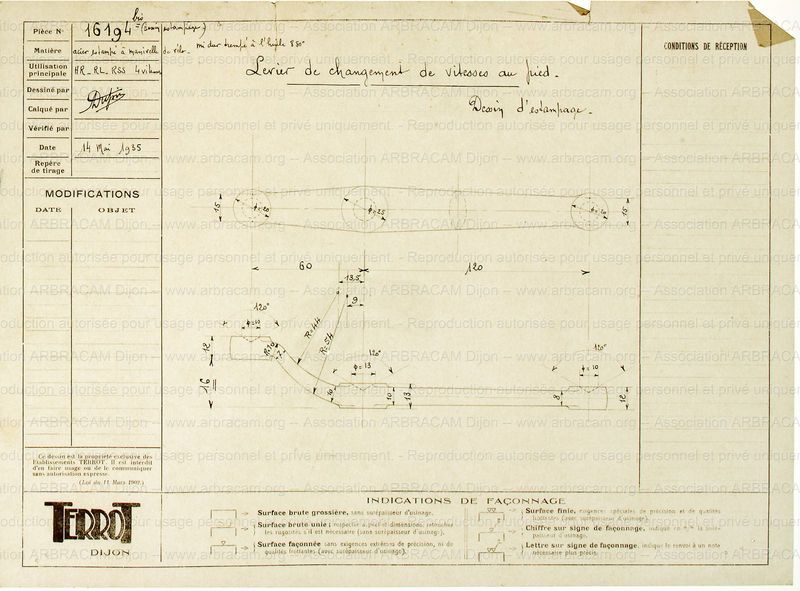 Pièce N° 16194 bis (dessin estampage)
Matière acier estampé à manivelle de vélo. mi dur trempé à l'huile 850°
Utilisation principale HR_RL_RSS 4 vitesses
Dessiné par
Calqué par
Vérifié par
Date 14 Mai 1935
Repère de tirage
MODIFICATIONS
DATE OBJET
CONDITIONS DE RÉCEPTION
Levier de changement de vitesses au pied.
Dessin d'estampage.
15 φ=25 φ=25 15
60 120
13,5
9
120°
R=44
R=54
12
16
120° 120°
φ=13 φ=10
10 13 8 12
Ce dessin est la propriété exclusive des
Etablissements TERROT. Il est interdit
d'en faire usage ou de le communiquer
sans autorisation expresse.
(Loi du 11 Mars 1902.)
TERROT
DIJON
INDICATIONS DE FAÇONNAGE
Surface brute grossière, sans surépaisseur d'usinage.
Surface brute unie; respecter à pied et dimensions, retoucher
les rugosités s'il est nécessaire (sans surépaisseur d'usinage).
Surface façonnée sans exigences extrêmes de précision, ni de
qualités frottantes (avec surépaisseur d'usinage).
Surface finie, exigences spéciales de précision et de qualités
frottantes (avec surépaisseur d'usinage).
Chiffre sur signe de façonnage, indique en la surépaisseur d'usinage.
Lettre sur signe de façonnage, indique le renvoi à une note
nécessaire plus précise.
www.arbracam.org -- Association ARBRACAM Dijon -- Reproduction autorisée pour usage personnel et privé uniquement.